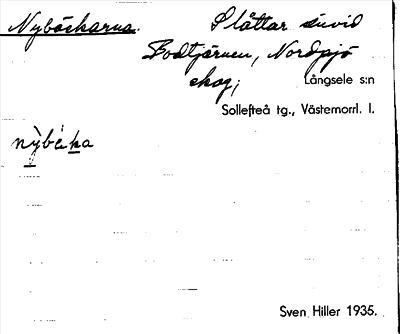 Nybäckarna. Slåttar invid
Bodtjärnen, Nordsjö
skog; Långsele s:n
Sollefteå tg., Västernorrl. l.
nỳbéka
Sven Hiller 1935.